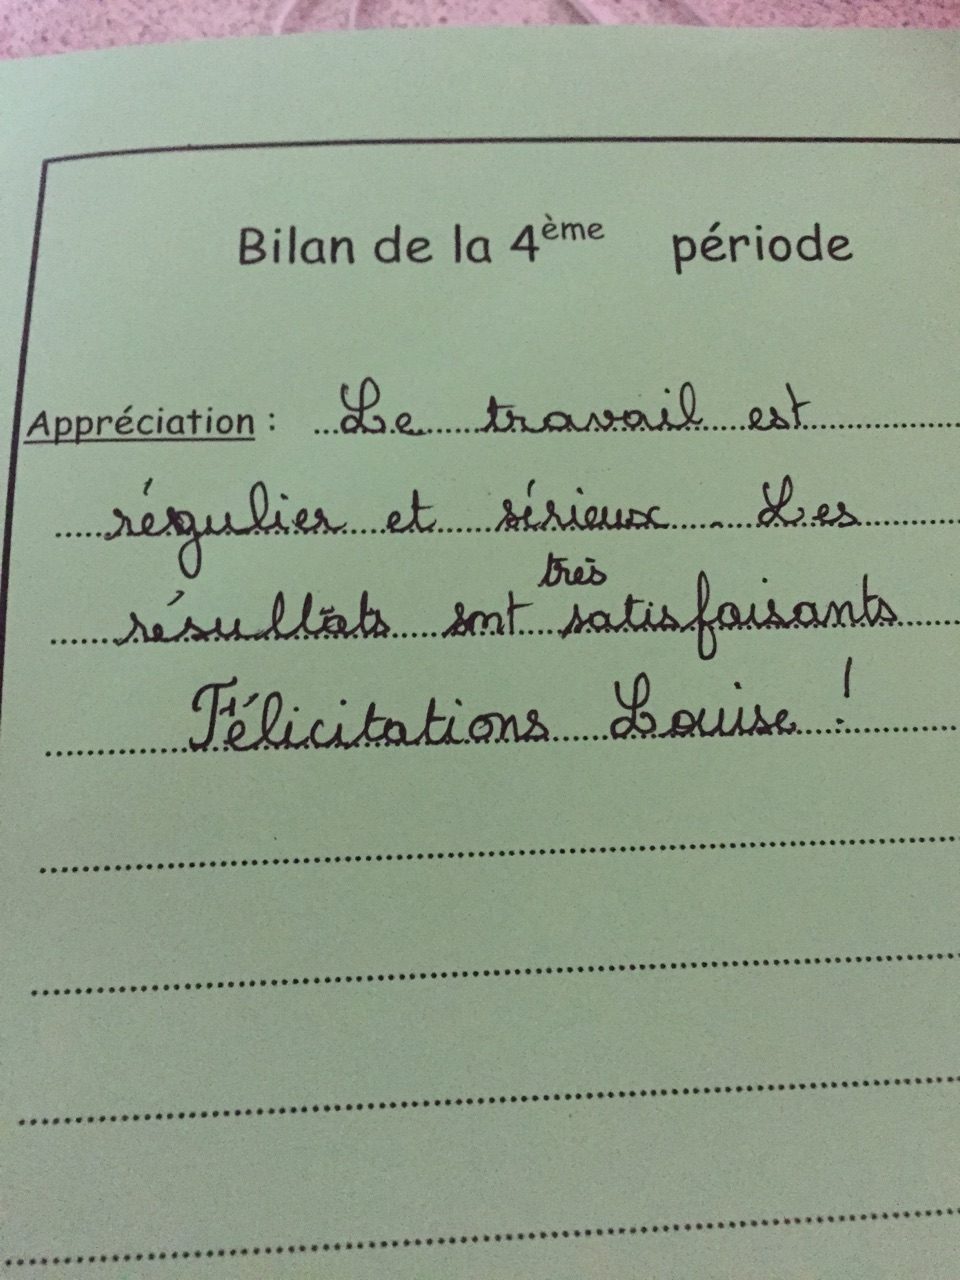 Bilan de la 4ème période
Appréciation : Le travail est
régulier et sérieux. Les
résultats sont très satisfaisants
Félicitations Louise !